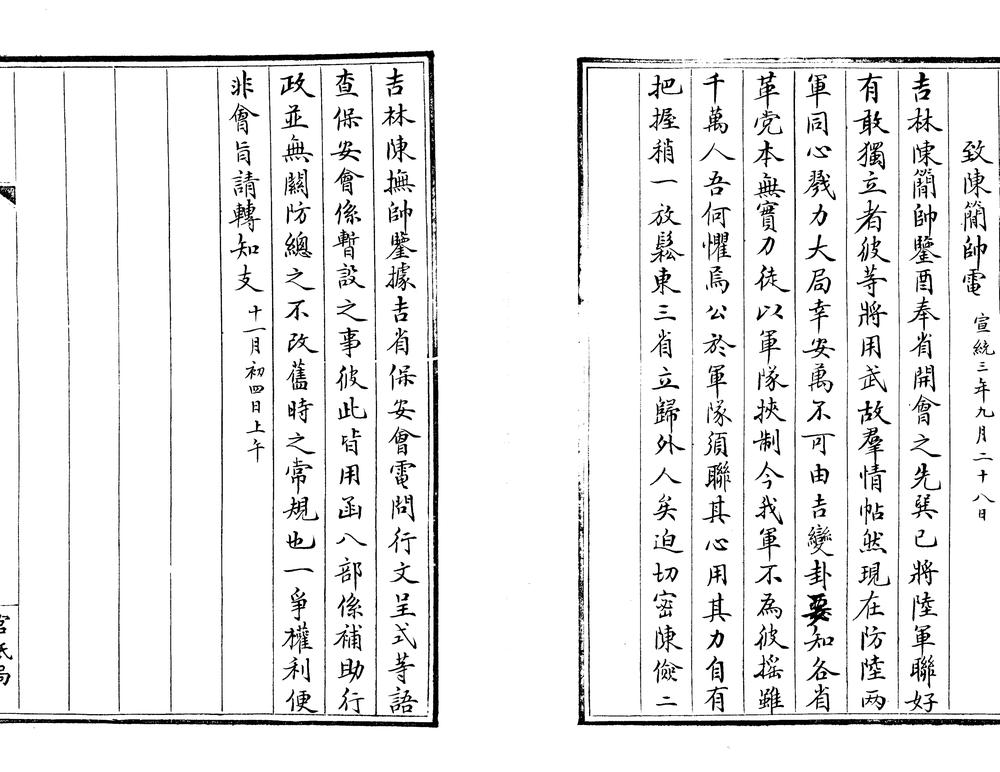 致陳簡帥電 宣統三年九月二十八日
吉林陳簡帥鑒酉奉省開會之先巽已將陸軍聯好
有敢獨立者彼等將用武故羣情帖然現在防陸両
軍同心戮力大局幸安萬不可由吉變卦要知各省
革党本無實力徒以軍隊挾制今我軍不為彼搖雖
千萬人吾何懼焉公於軍隊須聯其心用其力自有
把握稍一放鬆東三省立歸外人矣迫切密陳儉二
吉林陳撫帥鑒據吉省保安會電問行文呈式等語
查保安會係暫設之事彼此皆用函八部係補助行
政並無關防總之不改舊時之常規也一爭權利便
非會旨請轉知支 十一月初四日上午
官紙局